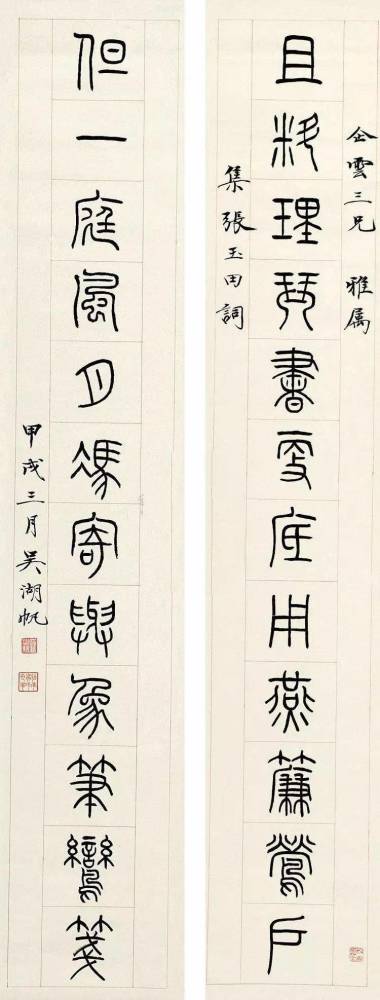 企雲三兄 雅属
且料理琴書更底用燕簾鶯户
集張玉田詞
但一庭風月馮寄與象筆鸞箋
甲戌三月吴湖帆